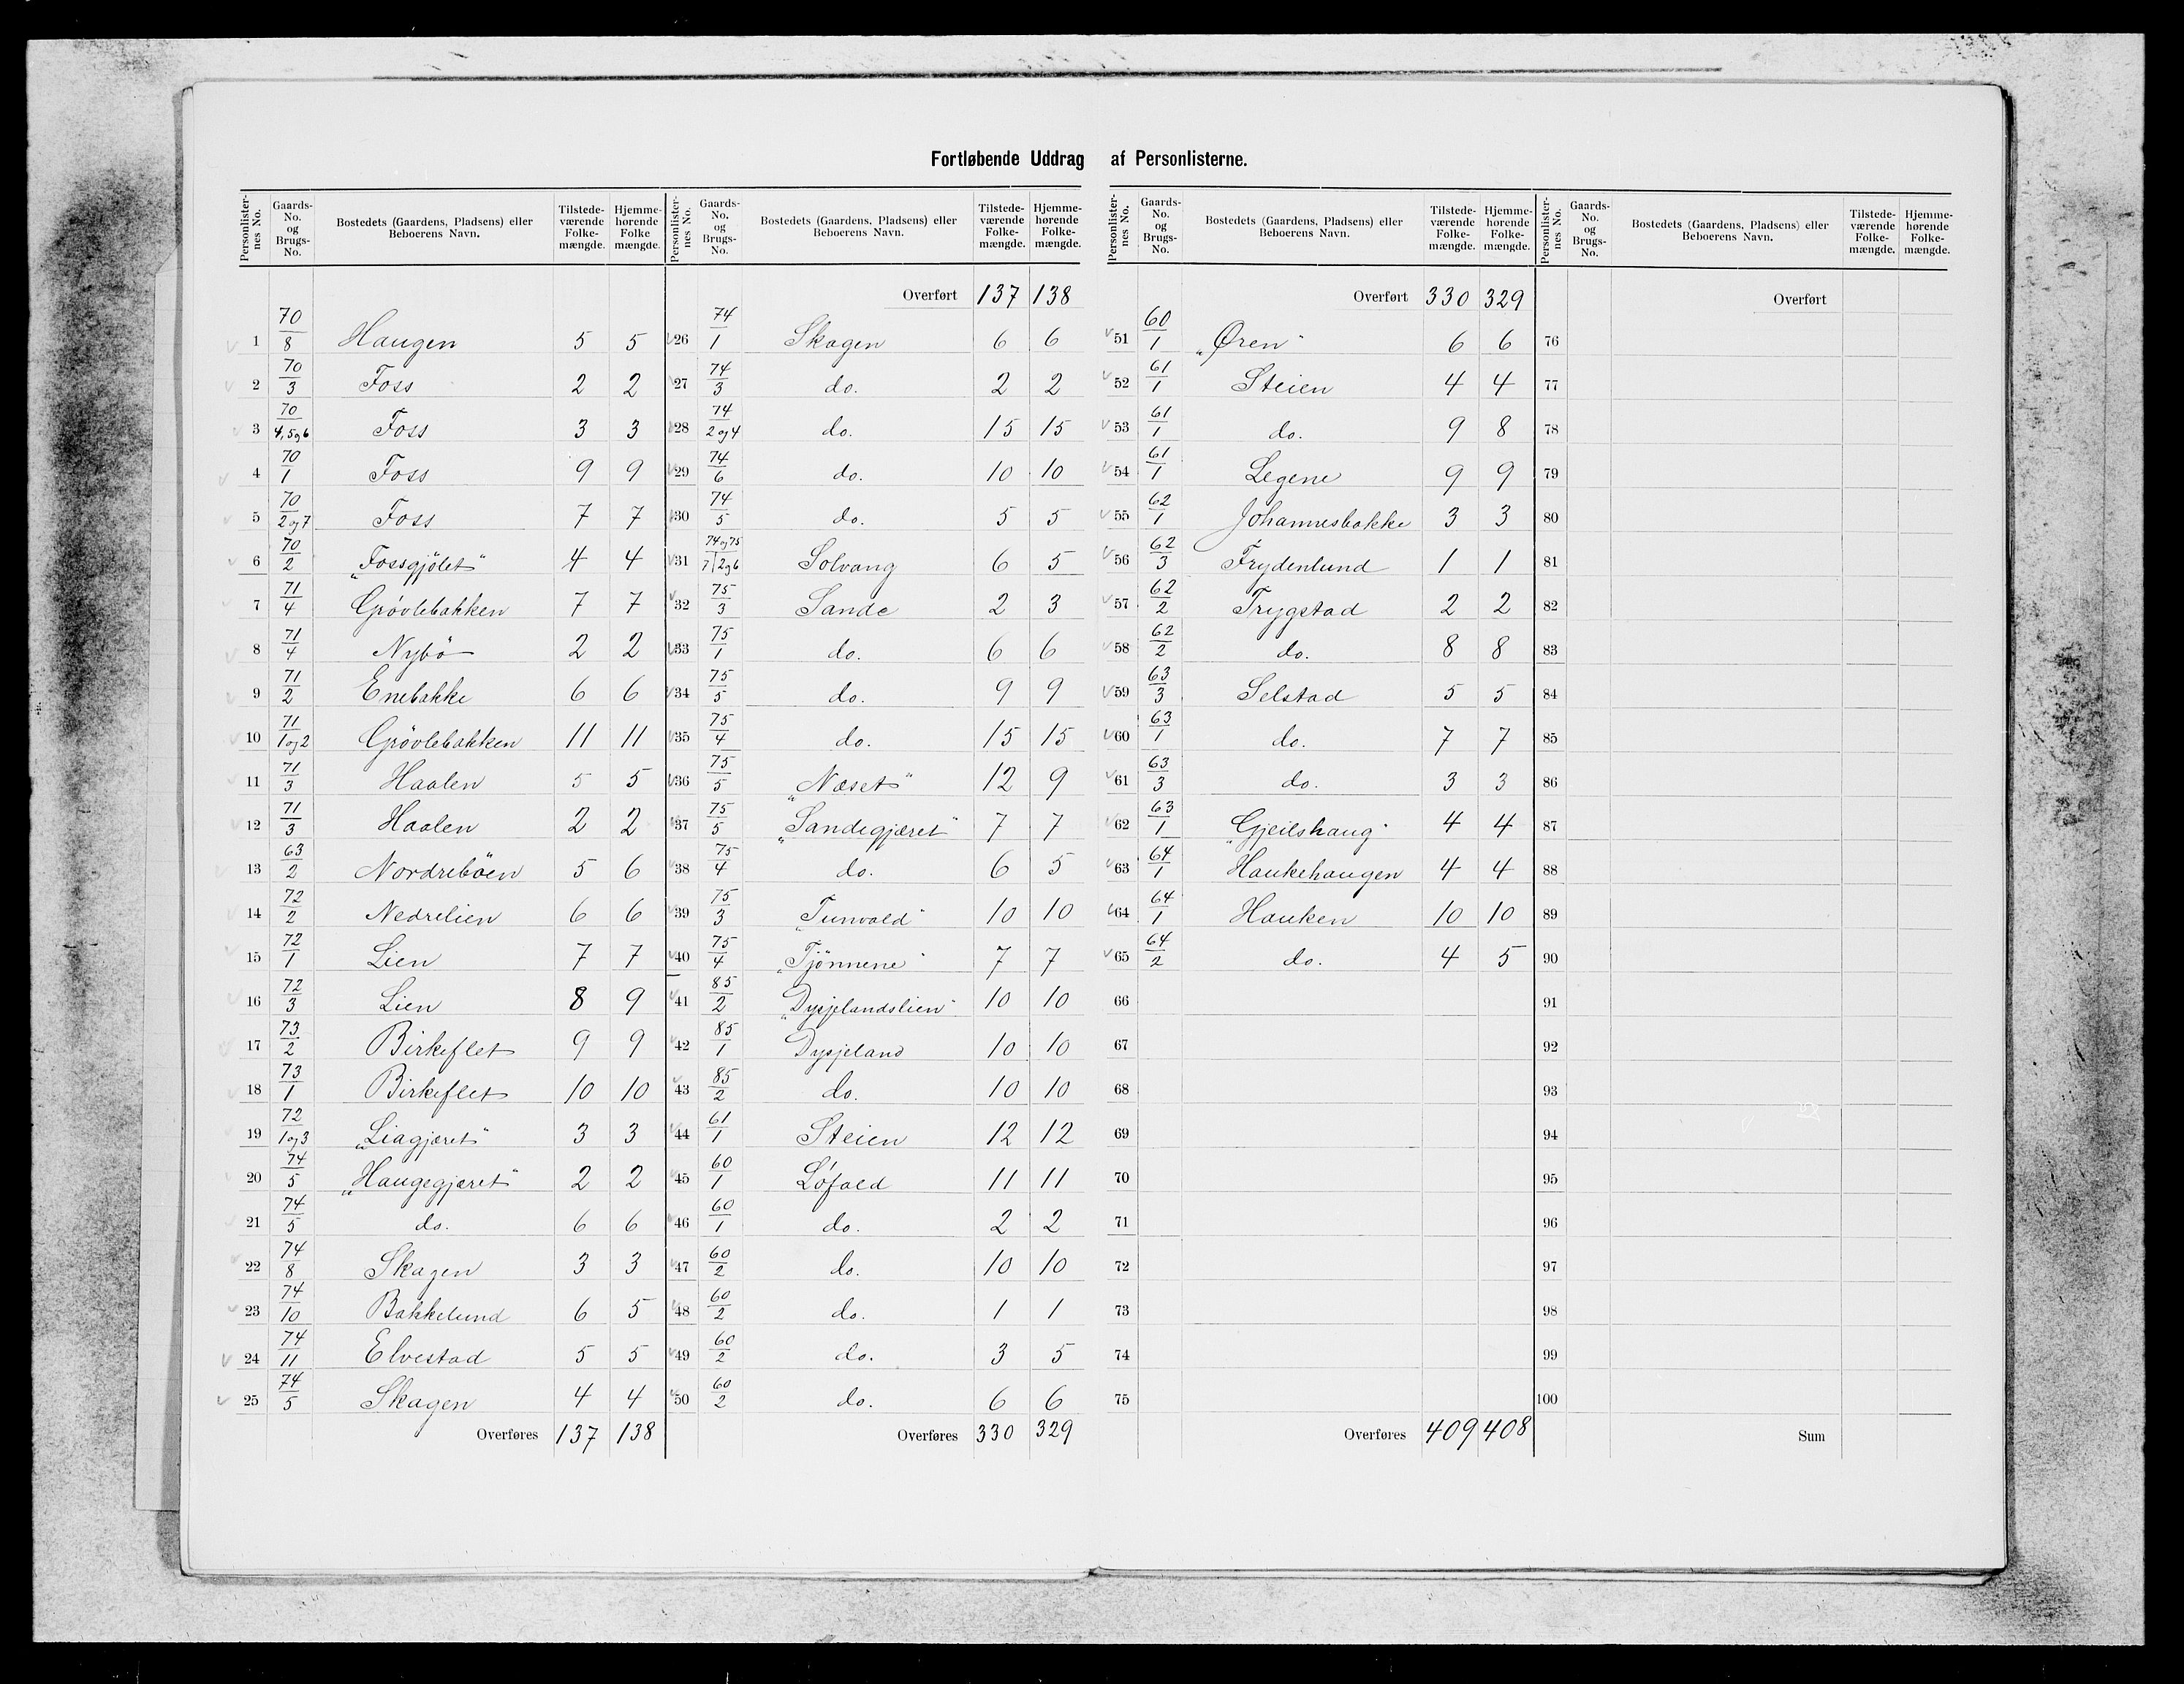 Fortløbende Uddrag af Personlisterne.
Personlisternes No. | Gaards-No. og Brugs-No. | Bostedets (Gaardens, Pladsens) eller Beboerens Navn. | Tilstedeværende Folkemængde. | Hjemmehørende Folkemængde.
1 70/8 Haugen 5 5
2 70/3 Foss 2 2
3 70/4, 5 og 6 Foss 3 3
4 70/1 Foss 9 9
5 70/2 og 7 Foss 7 7
6 70/2 „Fossgjölet“ 4 4
7 71/4 Grövlebakken 7 7
8 71/4 Nybö 2 2
9 71/2 Enebakke 6 6
10 71/1 og 2 Grövlebakken 11 11
11 71/3 Haalen 5 5
12 71/3 Haalen 2 2
13 63/2 Nordreböen 5 6
14 72/2 Nedrelien 6 6
15 72/1 Lien 7 7
16 72/3 Lien 8 9
17 73/2 Birkeflet 9 9
18 73/1 Birkeflet 10 10
19 72/1 og 3 „Liagjæret“ 3 3
20 74/5 „Haugegjæret“ 2 2
21 74/5 do. 6 6
22 74/8 Skagen 3 3
23 74/10 Bakkelund 6 5
24 74/11 Elvestad 5 5
25 74/5 Skagen 4 4
Overføres 137 138
Personlisternes No. | Gaards-No. og Brugs-No. | Bostedets (Gaardens, Pladsens) eller Beboerens Navn. | Tilstedeværende Folkemængde. | Hjemmehørende Folkemængde.
Overført 137 138
26 74/1 Skagen 6 6
27 74/3 do. 2 2
28 74/2 og 4 do. 15 15
29 74/6 do. 10 10
30 74/5 do. 5 5
31 74 og 75/7 | 2 og 6 Solvang 6 5
32 75/3 Sande 2 3
33 75/1 do. 6 6
34 75/5 do. 9 9
35 75/4 do. 15 15
36 75/5 „Næset“ 12 9
37 75/5 „Sandegjæret“ 7 7
38 75/4 do. 6 5
39 75/3 „Tunvold“ 10 10
40 75/4 „Tjönnene“ 7 7
41 85/2 „Dysjelandslien“ 10 10
42 85/1 Dysjeland 10 10
43 85/2 do. 10 10
44 61/1 Steien 12 12
45 60/1 Löfald 11 11
46 60/1 do. 2 2
47 60/2 do. 10 10
48 60/2 do. 1 1
49 60/2 do. 3 5
50 60/2 do. 6 6
Overføres 330 329
Personlisternes No. | Gaards-No. og Brugs-No. | Bostedets (Gaardens, Pladsens) eller Beboerens Navn. | Tilstedeværende Folkemængde. | Hjemmehørende Folkemængde.
Overført 330 329
51 60/1 „Øren“ 6 6
52 61/1 Steien 4 4
53 61/1 do. 9 8
54 61/1 Legene 9 9
55 62/1 Johannesbakke 3 3
56 62/3 Frydenlund 1 1
57 62/2 Trygstad 2 2
58 62/2 do. 8 8
59 63/3 Selstad 5 5
60 63/1 do. 7 7
61 63/3 do. 3 3
62 63/1 „Gjeilshaug“ 4 4
63 64/1 Haukehaugen 4 4
64 64/1 Hauken 10 10
65 64/2 do. 4 5
66
67
68
69
70
71
72
73
74
75
Overføres 409 408
Personlisternes No. | Gaards-No. og Brugs-No. | Bostedets (Gaardens, Pladsens) eller Beboerens Navn. | Tilstedeværende Folkemængde. | Hjemmehørende Folkemængde.
Overført
76
77
78
79
80
81
82
83
84
85
86
87
88
89
90
91
92
93
94
95
96
97
98
99
100
Sum